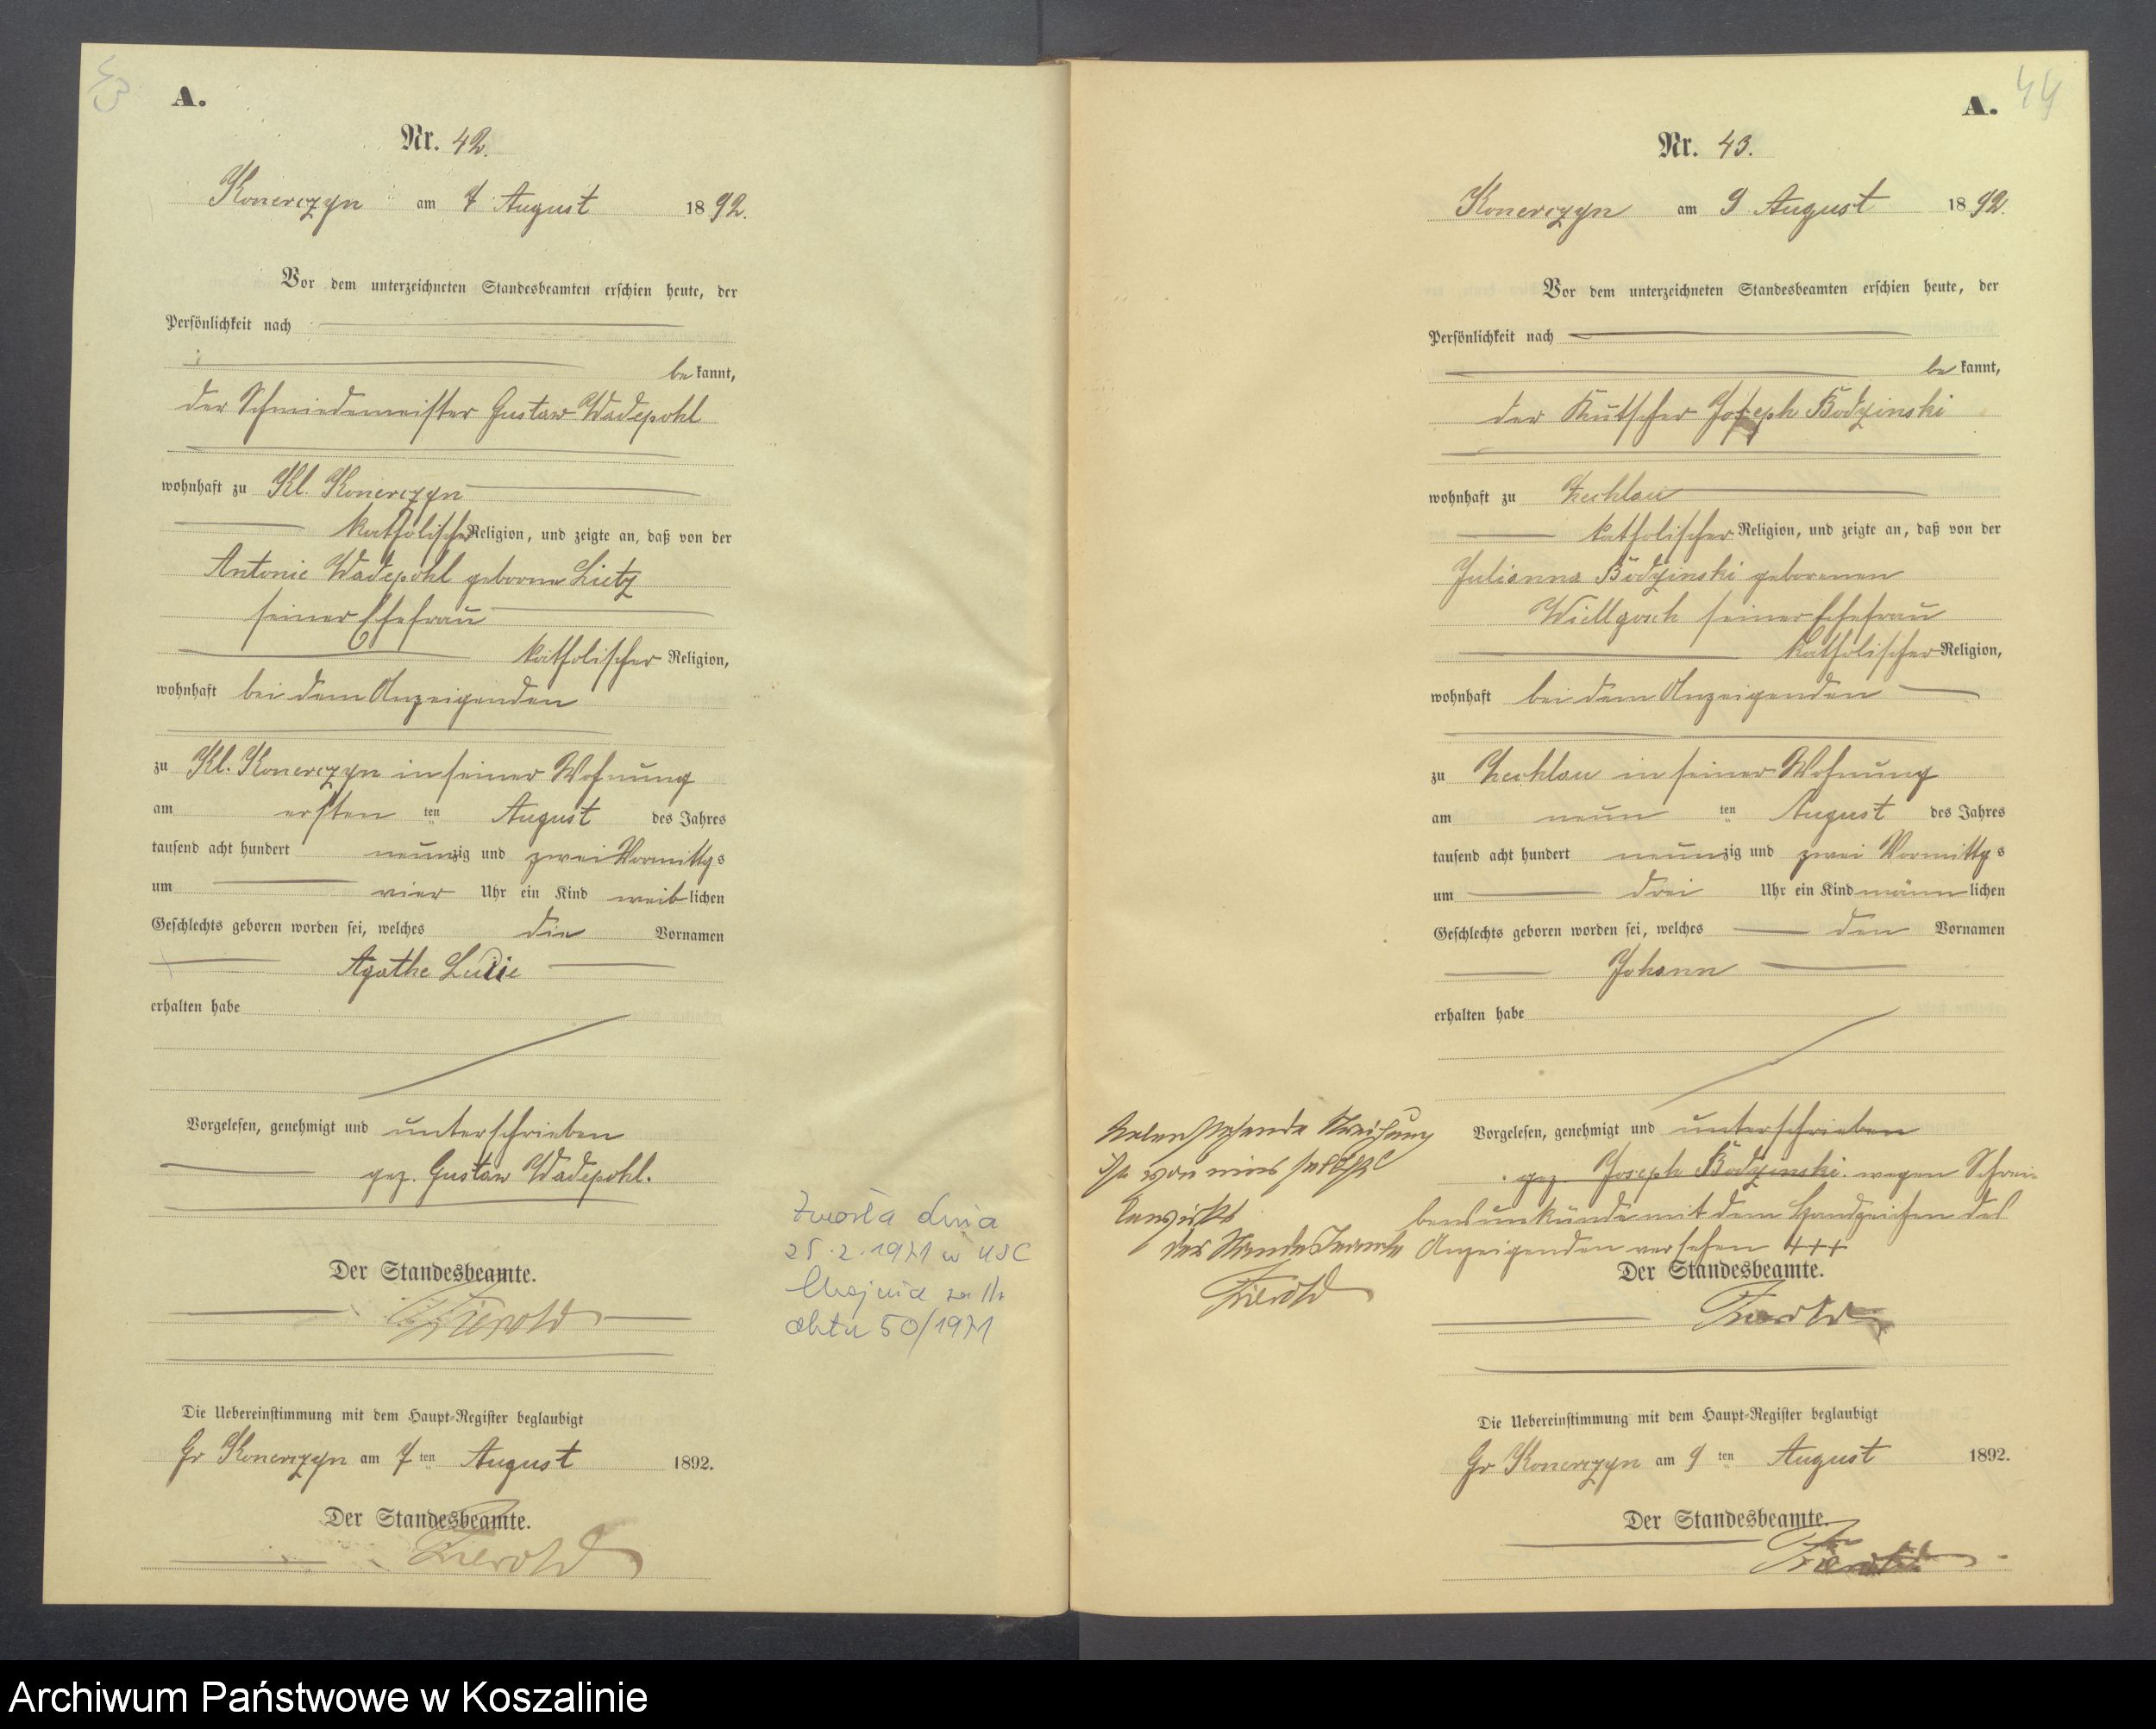 43
A.
Nr. 42.
Konerczyn am 7 August 1892.
Vor dem unterzeichneten Standesbeamten erschien heute, der
Persönlichkeit nach
be kannt,
der Schmiedemeister Gustav Wadepohl
wohnhaft zu Kl. Konerczyn
katholischer Religion, und zeigte an, daß von der
Antonie Wadepohl geborene Lietz
seiner Ehefrau
katholischer Religion,
wohnhaft bei dem Anzeigenden
zu Kl. Konerczyn in seiner Wohnung
am ersten ten August des Jahres
tausend acht hundert neunzig und zwei Vormittgs
um vier Uhr ein Kind weiblichen
Geschlechts geboren worden sei, welches die Vornamen
Agathe Luzie
erhalten habe
Vorgelesen, genehmigt und unterschrieben
gez. Gustav Wadepohl.
Der Standesbeamte.
Zierold
Die Uebereinstimmung mit dem Haupt-Register beglaubigt
Gr Konerczyn am 7ten August 1892.
Der Standesbeamte.
Zierold
Zmarła dnia
25.2.1971 w USC
Chojnice za Nr
aktu 50/1971
44
A.
Nr. 43.
Konerczyn am 9 August 1892.
Vor dem unterzeichneten Standesbeamten erschien heute, der
Persönlichkeit nach
be kannt,
der Kutscher Joseph Bodzinski
wohnhaft zu Zechlau
katholischer Religion, und zeigte an, daß von der
Julianna Bodzinski geborenen
Wiellgosch seiner Ehefrau
katholischer Religion,
wohnhaft bei dem Anzeigenden
zu Zechlau in seiner Wohnung
am neun ten August des Jahres
tausend acht hundert neunzig und zwei Vormittgs
um drei Uhr ein Kind männlichen
Geschlechts geboren worden sei, welches den Vornamen
Johann
erhalten habe
Vorgelesen, genehmigt und unterschrieben
gez. Joseph Bodzinski. wegen Schrei-
bensunkunde mit dem Handzeichen des
Anzeigenden versehen +++
Nebenstehende Streichung
ist von mir selbst
bewirkt
der Standesbeamte
Zierold
Der Standesbeamte.
Zierold
Die Uebereinstimmung mit dem Haupt-Register beglaubigt
Gr Konerczyn am 9ten August 1892.
Der Standesbeamte.
Zierold
Archiwum Państwowe w Koszalinie